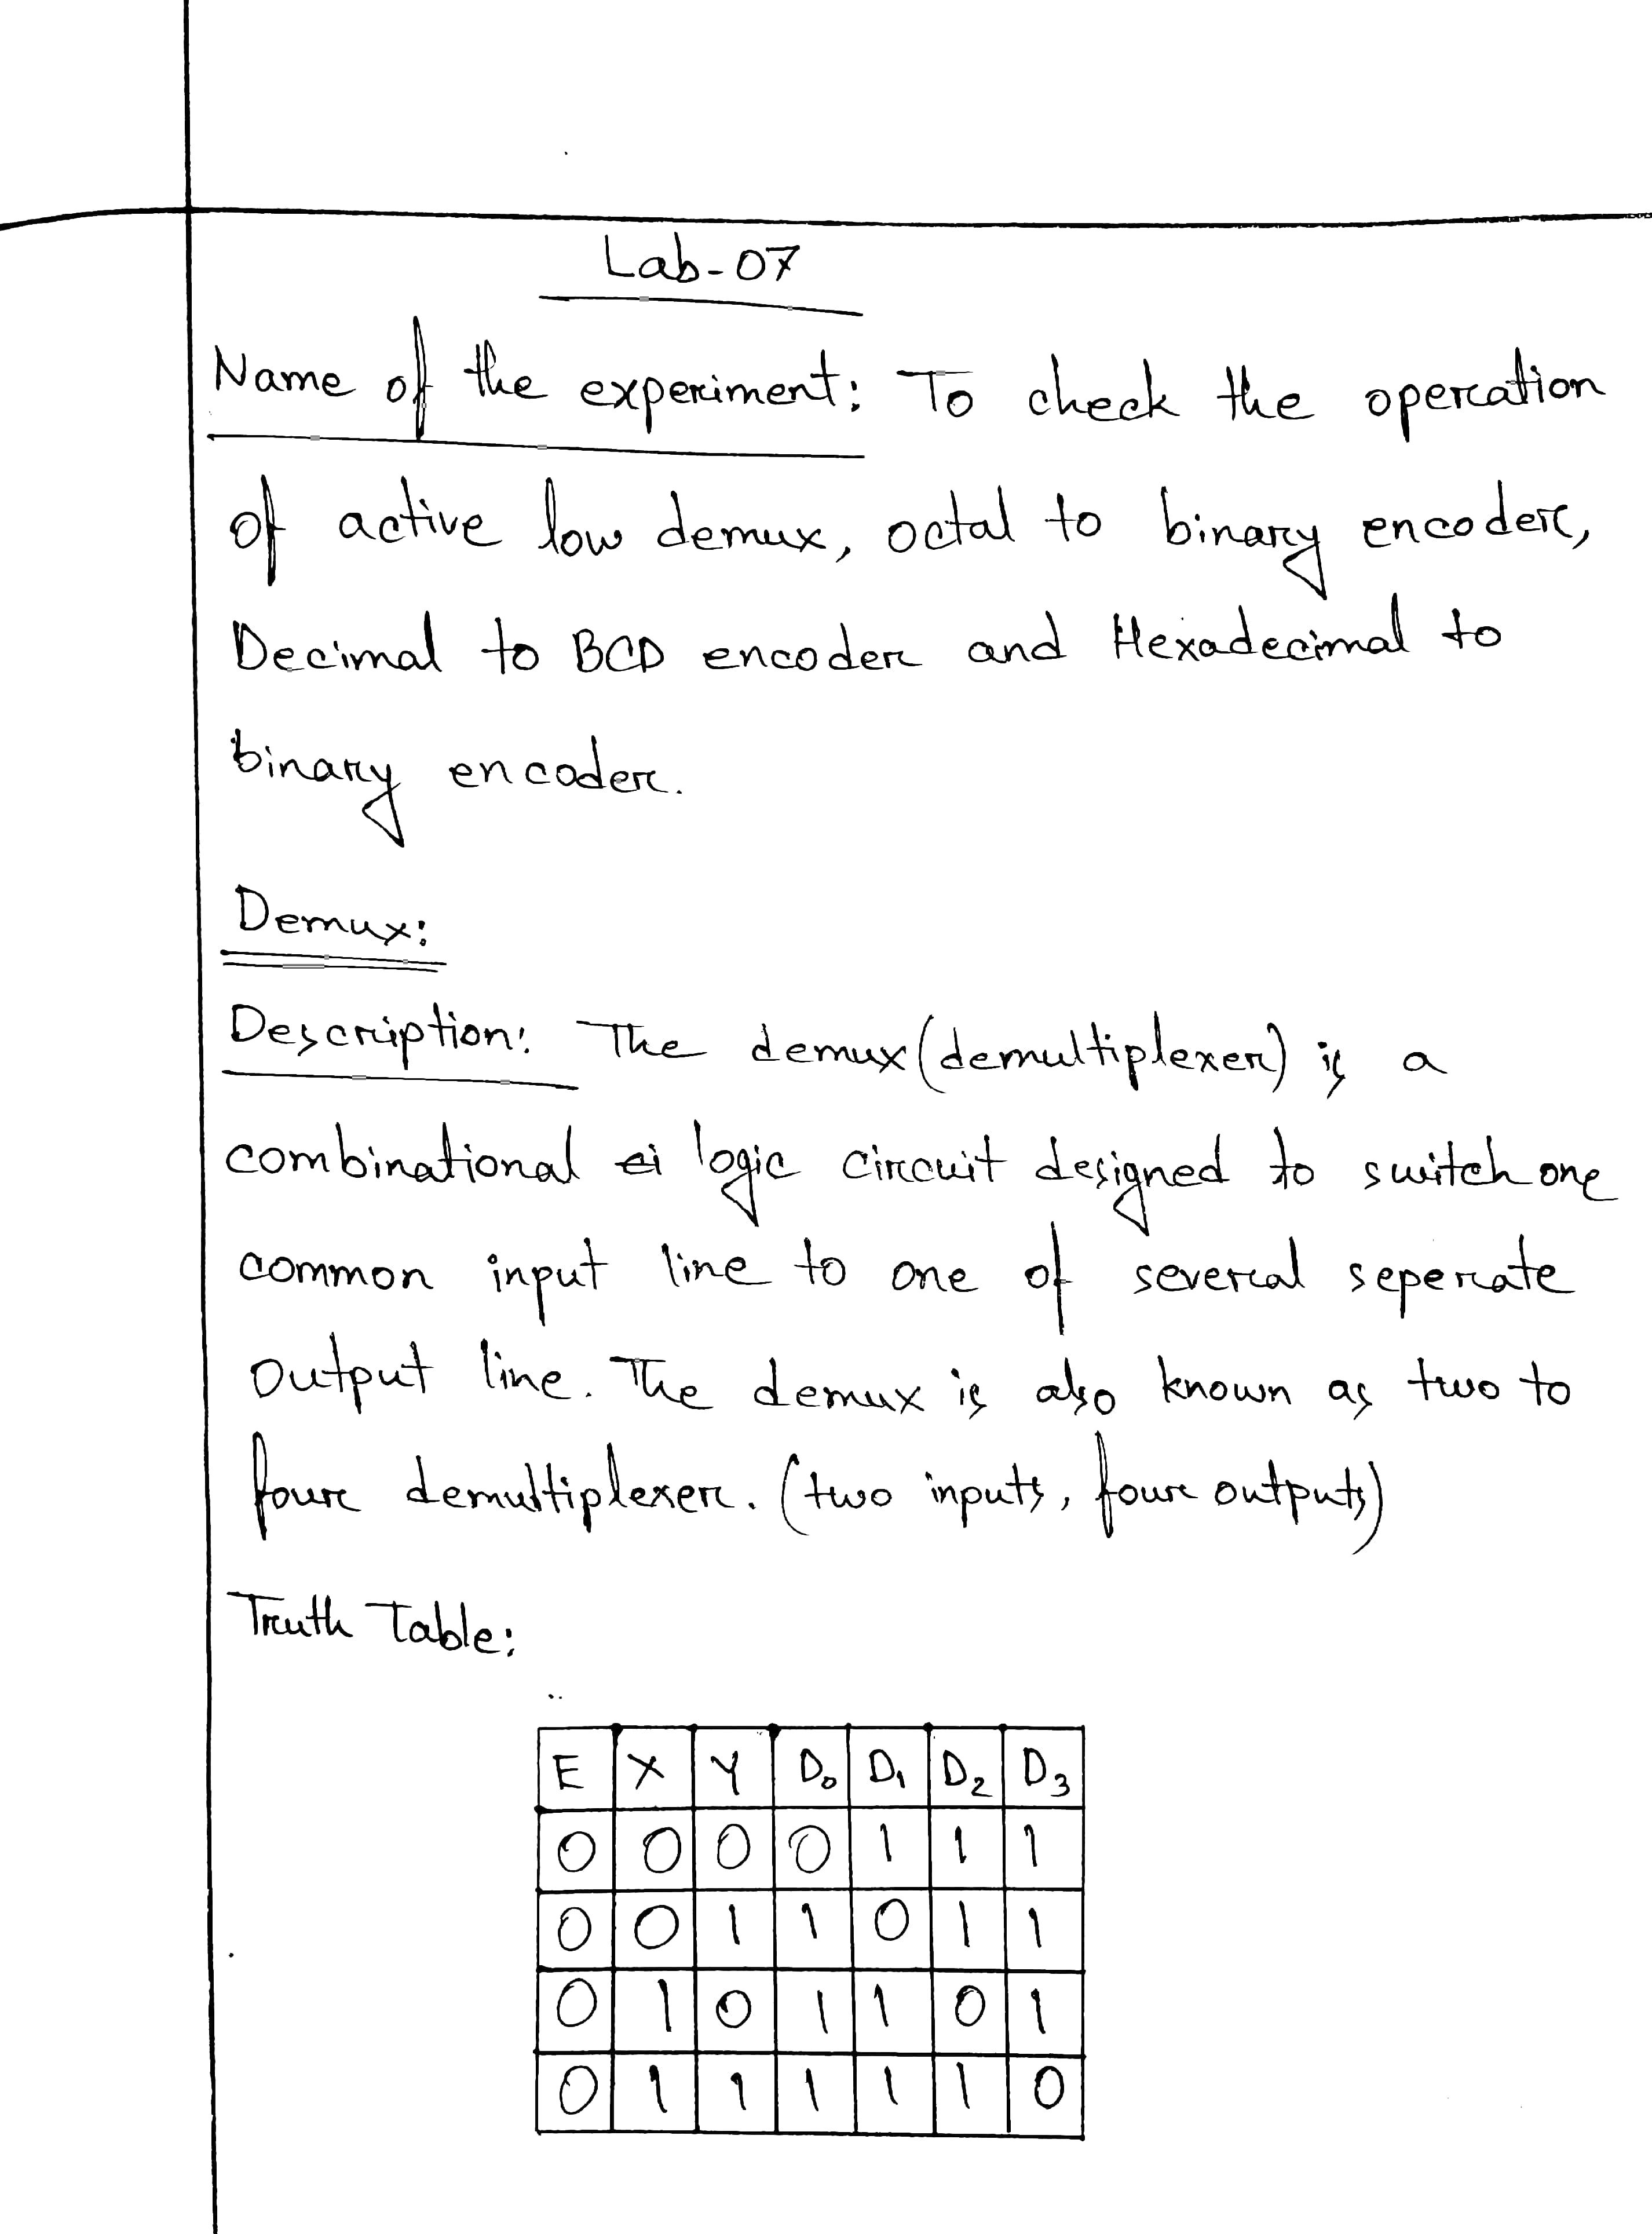 Lab-07
Name of the experiment: To check the operation
of active low demux, octal to binary encoder,
Decimal to BCD encoder and Hexadecimal to
binary encoder.
Demux:
Description: The demux (demultiplexer) is a
combinational ci logic circuit designed to switch one
common input line to one of several seperate
output line. The demux is also known as two to
four demultiplexer. (two inputs, four outputs)
Truth Table:
E X Y D₀ D₁ D₂ D₃
0 0 0 0 1 1 1
0 0 1 1 0 1 1
0 1 0 1 1 0 1
0 1 1 1 1 1 0